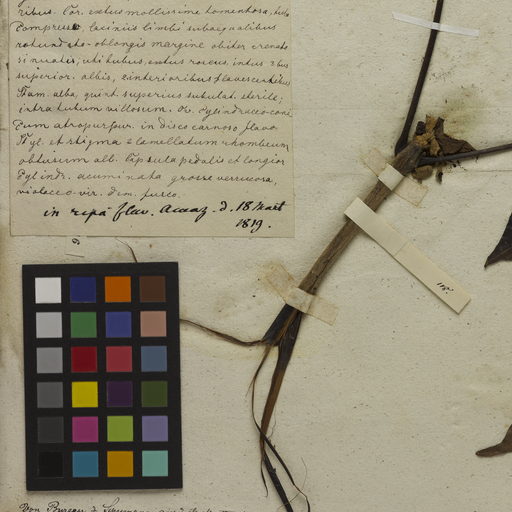 ribus. Cor. extus mollissime tomentosa, tubo
compresso, laciniis limbi subaequalibus
rotundato-oblongis margine obiter crenato
sinuatis, uti tubus, extus roseus, intus 2bus
superior. albis, 3 interioribus flavescentibus
Stam. alba, quint. superius subulat. sterile,
intra tutum villosum. Ov. cylindraceo-coni
cum atropurpur. in disco carnoso flavo
Styl. et stigma 2 lamellatum rhombeum
obtusum alb. Capsula pedalis et longior
cylindr. acuminata grosse verrucosa,
violaceo-vir. dein. fusco.
in ripa fluv. Amaz. d. 18 Mart
1819.